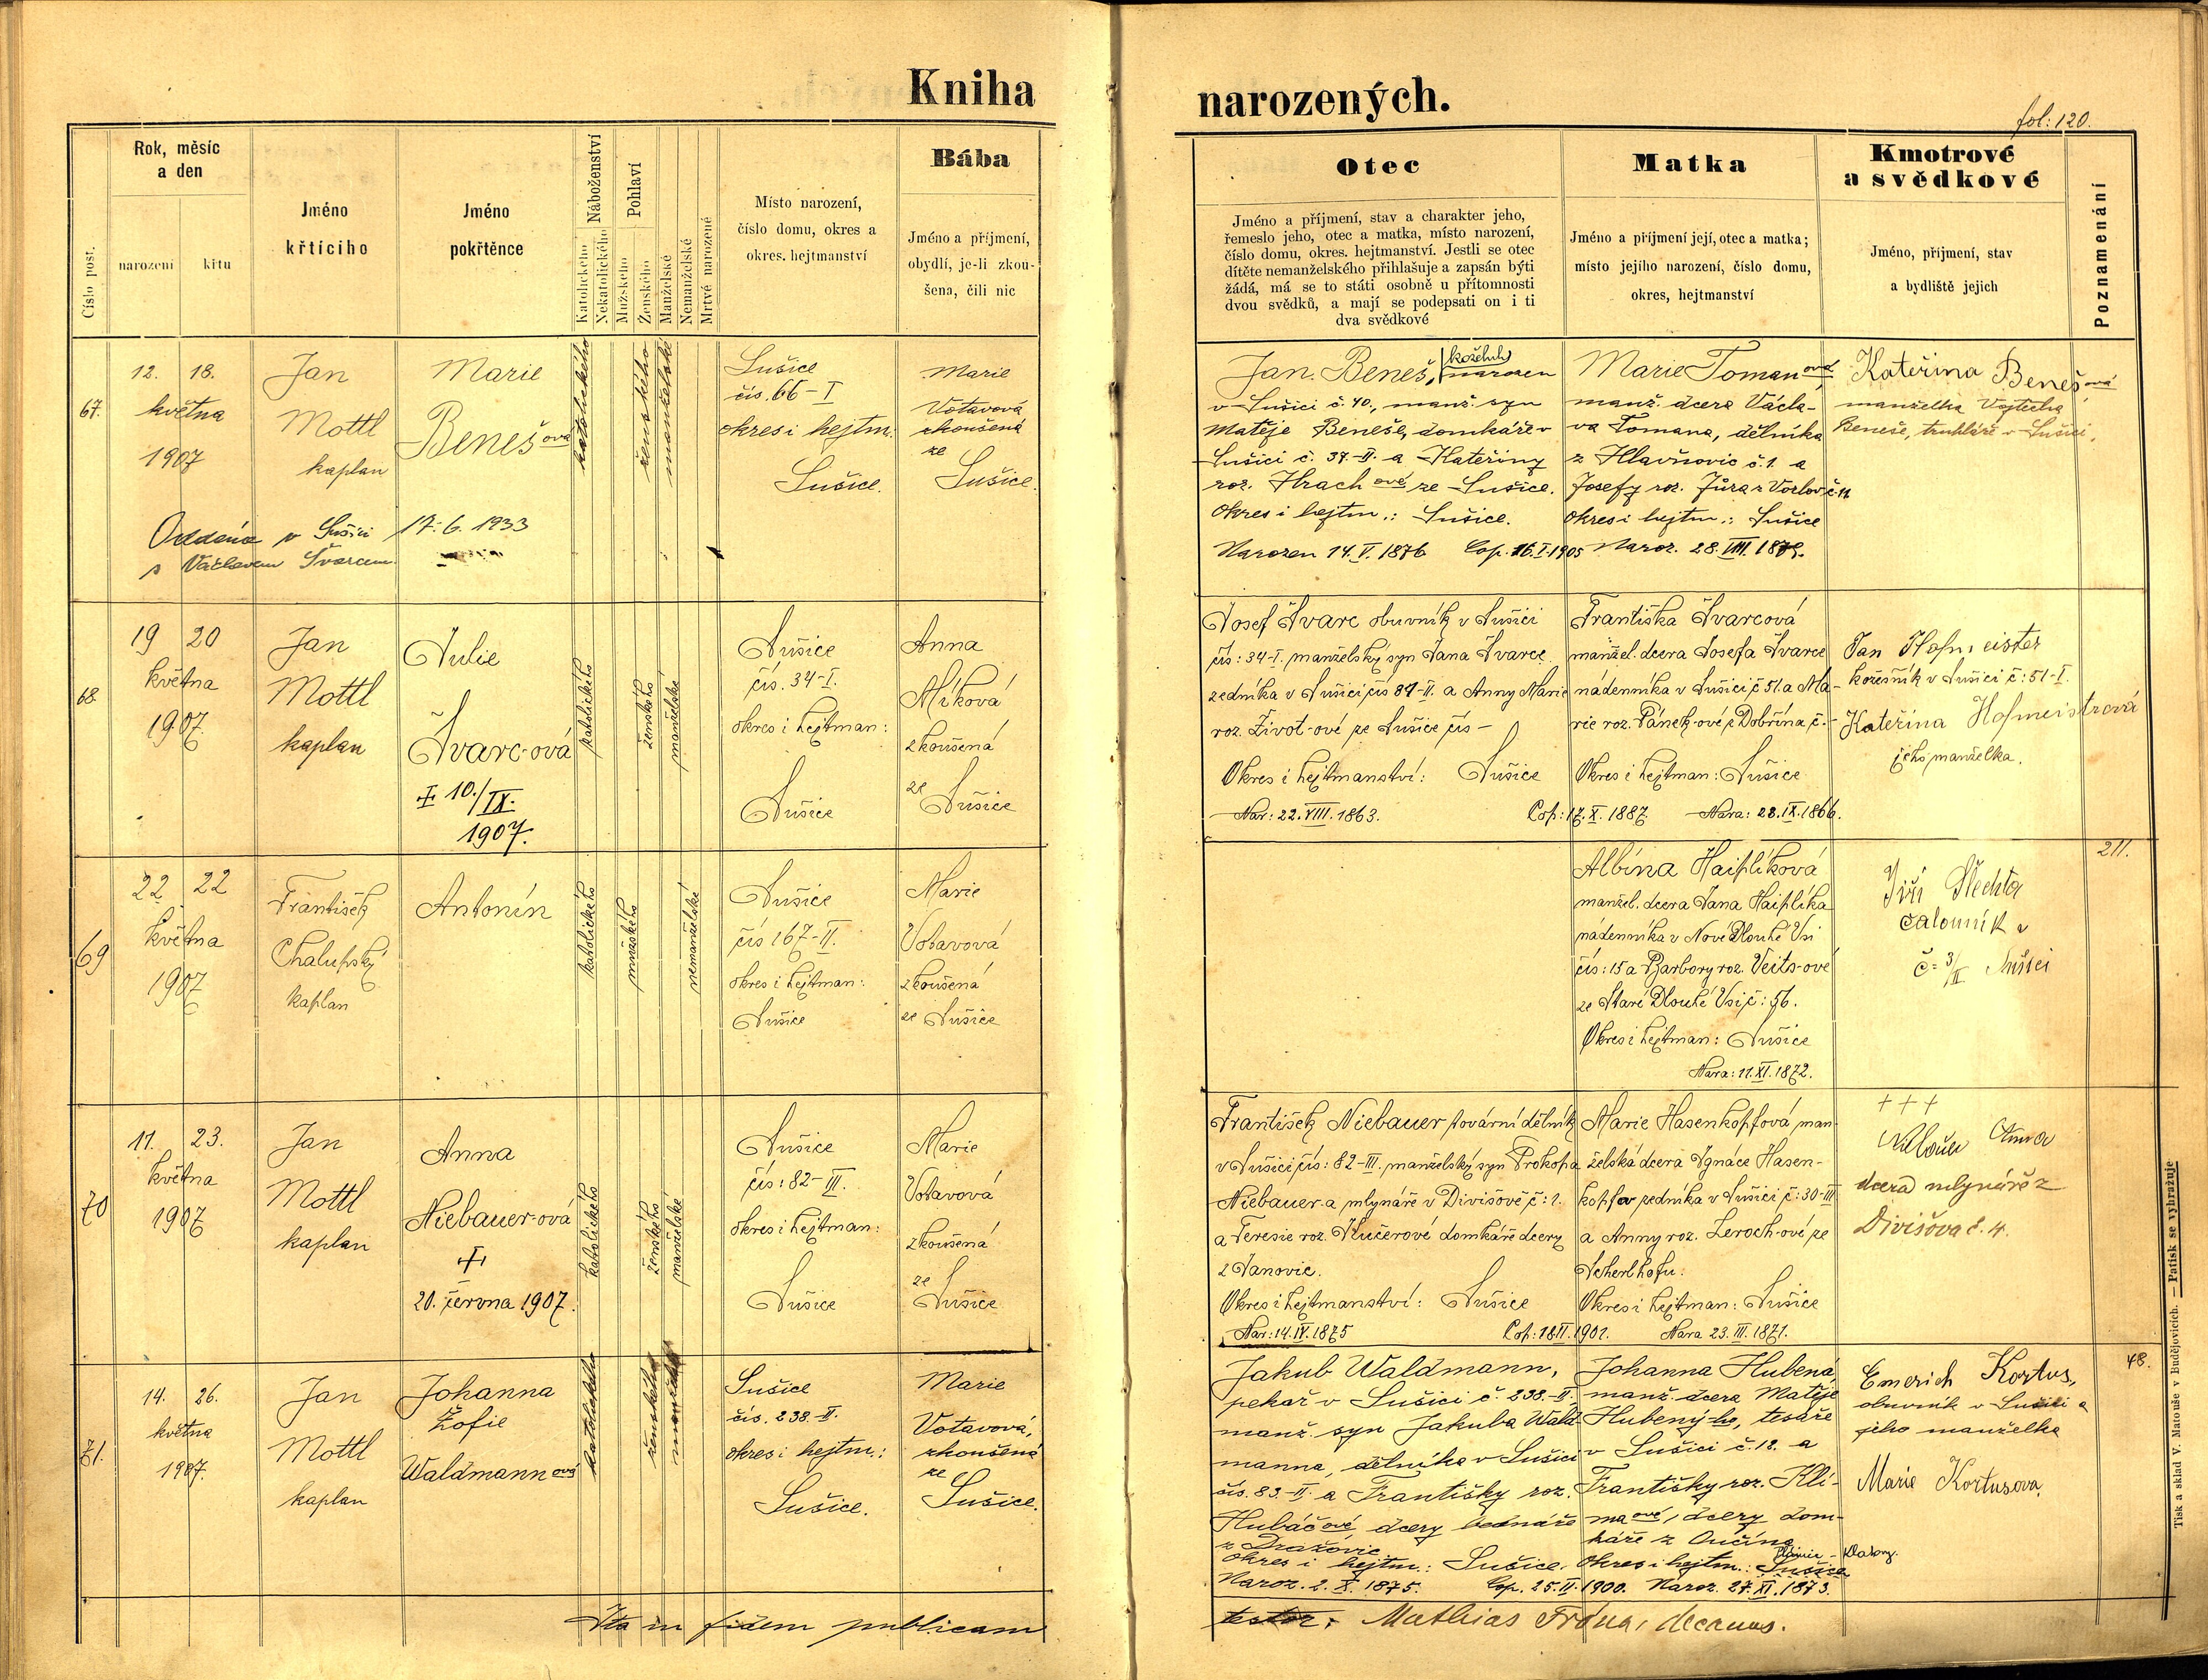 Kniha
narozených.
fol: 120.
Číslo post.
Rok, měsíc
a den
narození
křtu
Jméno
křtícího
Jméno
pokřtěnce
Náboženství
Katolického
Nekatolického
Pohlaví
Mužského
Ženského
Manželské
Nemanželské
Mrtvě narozené
Místo narození,
číslo domu, okres a
okres. hejtmanství
Bába
Jméno a příjmení,
obydlí, je-li zkou-
šena, čili nic
Otec
Jméno a příjmení, stav a charakter jeho,
řemeslo jeho, otec a matka, místo narození,
číslo domu, okres. hejtmanství. Jestli se otec
dítěte nemanželského přihlašuje a zapsán býti
žádá, má se to státi osobně u přítomnosti
dvou svědků, a mají se podepsati on i ti
dva svědkové
Matka
Jméno a příjmení její, otec a matka;
místo jejího narození, číslo domu,
okres, hejtmanství
Kmotrové
a svědkové
Jméno, příjmení, stav
a bydliště jejich
Poznamenání
67.
12. 18.
května
1907
Jan
Mottl
kaplan
Marie
Benešová
katolického
ženského
manželské
Sušice
čís. 66-I
okres i hejtm:
Sušice.
Marie
Votavová
zkoušená
ze
Sušice.
Oddána v Sušici 17. 6. 1933
s Václavem Švarcem.
Jan Beneš, koželuh
narozen
v Sušici č. 40., manž. syn
Matěje Beneše, domkáře v
Sušici č. 37-II. a Kateřiny
roz. Hrachové ze Sušice.
Okres i hejtm.: Sušice.
Narozen 14. V. 1876 Cop. 16. I. 1905
Marie Tomanová,
manž. dcera Václa-
va Tomana, dělníka
z Hlavňovic č. 1. a
Josefy roz. Jůza z Vozlov č. 12
Okres i hejtm.: Sušice
Naroz. 28. VIII.
Kateřina Benešová
manželka Vojtěcha
Beneše, truhláře v Sušici.
68.
19 20
května
1907.
Jan
Mottl
kaplan
Julie
Švarc-ová
† 10./IX.
1907.
katolického
ženského
manželské
Sušice
čís. 34-I.
okres i hejtman:
Sušice
Anna
Míková
zkoušená
ze Sušice
Josef Švarc obuvník v Sušici
čís: 34-I. manželský syn Jana Švarce
zedníka v Sušici čís 87-II. a Anny Marie
roz. Život-ové ze Sušice čís -
Okres i hejtmanství: Sušice
Nar: 22. VIII. 1863. Cop: 17. X. 1887.
Františka Švarcová
manžel. dcera Josefa Švarce
nádenníka v Sušici č 51. a Ma-
rie roz. Pánek-ové z Dobřína č. -
Okres i hejtman: Sušice
Nara: 28. IX. 1866.
Jan Hofmeister
kožešník v Sušici č: 51-I.
Kateřina Hofmeistrová
jeho manželka.
69
22 22
května
1907
František
Chalupský
kaplan
Antonín
katolického
mužského
nemanželské
Sušice
čís 167-II.
okres i hejtman:
Sušice
Marie
Votavová
zkoušená
ze Sušice
Albína Haišlíková
manžel. dcera Jana Haišlíka
nádenníka v Nové Dlouhé Vsi
čís: 15 a Barbory roz. Veits-ové
ze Staré Dlouhé Vsi č: 56.
Okres i hejtman: Sušice
Nara: 11. XI. 1872.
Jiří Šlechta
čalouník v
č. 3/II Sušici
211.
70
11. 23.
května
1907
Jan
Mottl
kaplan
Anna
Niebauer-ová
†
20. června 1907.
katolického
ženského
manželské
Sušice
čís: 82-III.
okres i hejtman:
Sušice
Marie
Votavová
zkoušená
ze
Sušice
František Niebauer tovární dělník
v Sušici čís: 82-III. manželský syn Prokopa
Niebauer-a mlynáře v Divišově č: 1.
a Teresie roz. Kučerové domkáře dcery
z Janovic.
Okres i hejtmanství: Sušice
Nar: 14. IV. 1875 Cop: 18 II. 1901.
Marie Hasenkopfová man-
želská dcera Ignáce Hasen-
kopfa zedníka v Sušici č: 30-III
a Anny roz. Zeroch-ové ze
Scherlhofu.
Okres i hejtman: Sušice
Nara 23. III. 1871.
+ + +
Anna
dcera mlynáře z
Divišova č. 4.
71.
14. 26.
května
1907.
Jan
Mottl
kaplan
Johanna
Žofie
Waldmannová
katolického
ženského
manželské
Sušice
čís. 238-II.
okres i hejtm.:
Sušice.
Marie
Votavová,
zkoušená
ze
Sušice.
Jakub Waldmann,
pekař v Sušici č. 238.-II.,
manž. syn Jakuba Wald-
manna, dělníka v Sušici
čís. 83-II. a Františky roz.
Hubáčové dcery bednáře
z Dražovic
okres i hejtm.: Sušice.
Naroz. 2. X. 1875. Cop. 25. II. 1900.
Johanna Hubená,
manž. dcera Matěje
Hubený-ho, tesaře
v Sušici č. 12. a
Františky roz. Klí-
mové, dcery dom-
káře z Lučína
Plánice - Klatovy.
okres i hejtm.: Sušice
Naroz. 27. XI. 1873.
Emerich Kortus,
obuvník v Sušici a
jeho manželka
Marie Kortusova.
48.
Ita in fidem publicam
testor: Mathias Frána, decanus.
Tisk a sklad V. Matouše v Budějovicích. — Patisk se vyhražuje